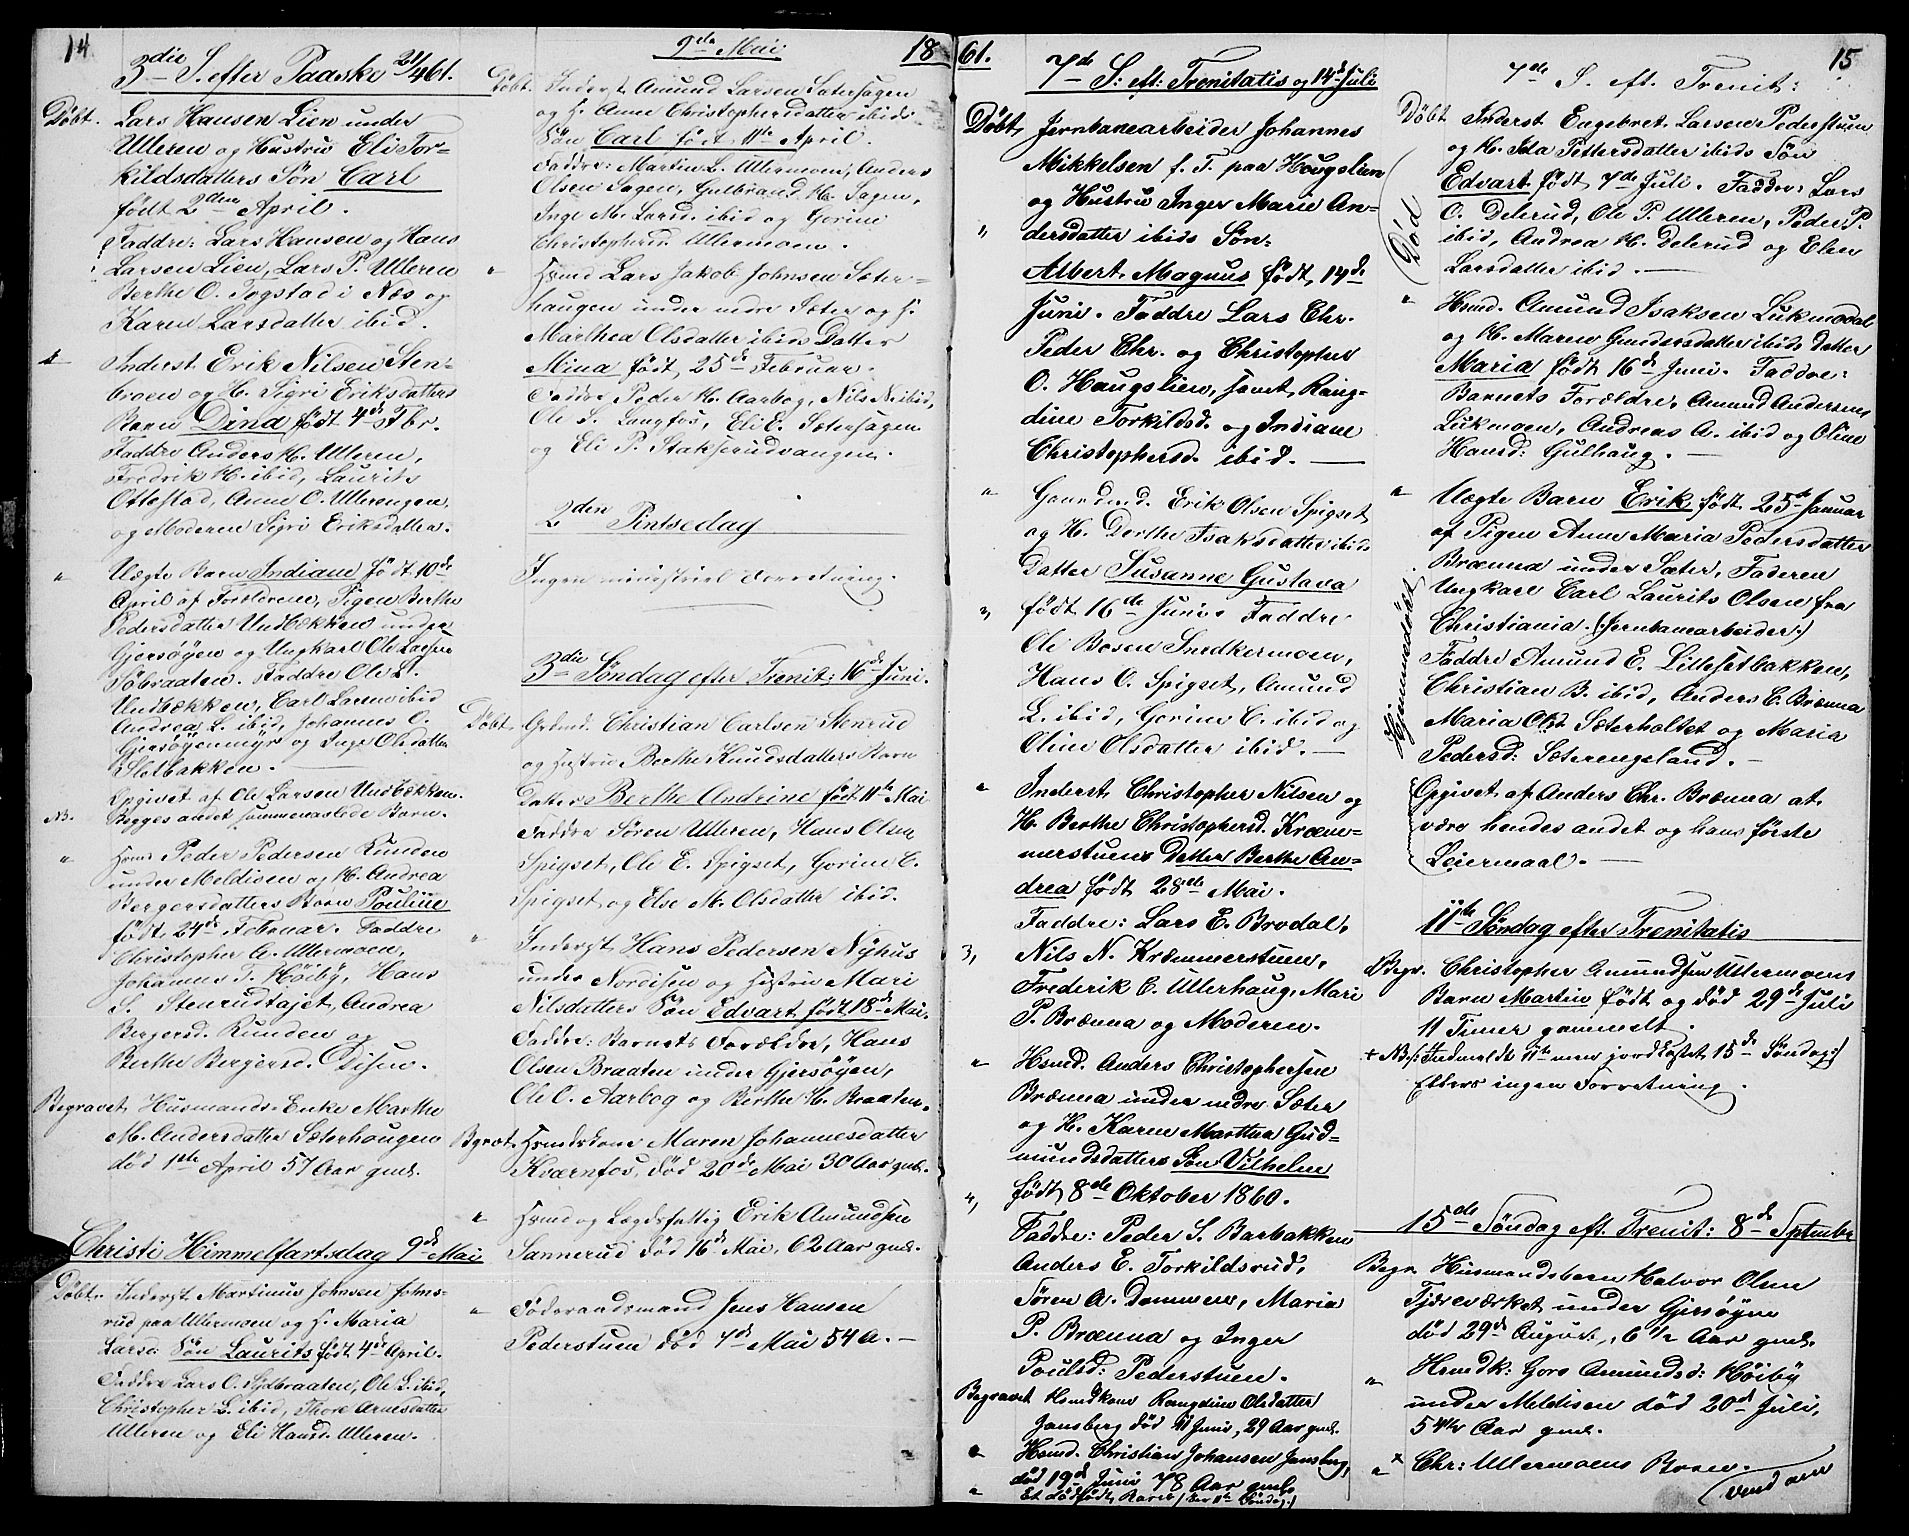 14
3die S. efter Paaske 21/4 61.
Døbt. Lars Hansen Lien under
Ulleren og Hustru Eli Tor-
kildsdatters Søn Carl
født 2den April.
Faddre: Lars Hansen og Hans
Larsen Lien, Lars P. Ulleren
Berthe O. Togstad i Næs og
Karen Larsdatter ibid.
Inderst Erik Nilsen Sten-
broen og H. Sigri Eriksdatters
Barn Dina født 4de Fbr.
Faddre Anders H. Ulleren,
Fredrik H. ibid, Laurits
Ottestad, Anne O. Ullerengen
og Moderen Sigri Eriksdatter.
" Uægte Barn Indiane født 10de
April af Forældrene, Pigen Berthe
Pedersdatter Undbækken under
Gjersøyen og Ungkarl Ole Larsen
Søbraaten. Faddre Ole L.
Undbækken, Carl Larsen ibid
Andrea L. ibid, Johannes O.
Gjersøyenmyr og Inge Olsdatter
Sletbakken.
Opgivet af Ole Larsen Undbækken.
NB. Begges andet sammenavlede Barn.
" Hsmd Peder Pedersen Runden
under Meldisen og H. Andrea
Bergersdatters Barn Pouline
født 24de Februar. Faddre
Christopher A. Ullermoen,
Johannes T. Høiby, Hans
S. Stenrudtajet, Andrea
Bergersd. Runden og
Berthe Bergersd. Disen.
Begravet Husmands-Enke Marthe
M. Andersdatter Sæterhougen
død 1ste April 57 Aar gml.
Christi Himmelfartsdag 9de Mai
Døbt. Inderst Martinus Johnsen Johns-
rud paa Ullermoen og H. Maria
Larsd. Søn Laurits født 4de April.
Faddre Lars O. Sydbraaten, Ole L. ibid,
Christopher L. ibid, Thore Arnesdatter
Ulleren og Eli Hansd. Ulleren.
9de Mai 18
Døbt. Inderst Amund Larsen Sætersagen
og H. Anne Christophersdatter ibids
Søn Carl født 11te April.
Faddre: Martin L. Ullermoen, Anders
Olsen Sagen, Gulbrand H. Sagen,
Inge M. Larsd. ibid og Gorine
Christophersd. Ullermoen.
" Hsmd Lars Jakob Johnsen Sæter-
haugen under nedre Sæter og H.
Marthea Olsdatter ibids Datter
Mina født 25de Februar.
Faddre Peder H. Aarbog, Nils N. ibid,
Ole S. Langfos, Eli E. Sætersagen
og Eli P. Stakserudvangen.
2den Pintsedag
Ingen ministriel Forretning.
3die Søndag efter Trenit: 16de Juni.
Døbt. Grdmd. Christian Carlsen Stenrud
og Hustru Berthe Knudsdatters Barn
Datter Berthe Andrine født 11te Mai
Faddre Søren Ulleren, Hans Olsen
Spigset, Ole E. Spigset, Gorine C.
Spigset og Else M. Olsdatter ibid.
" Inderst Hans Pedersen Nyhus
under Nordisen og Hustru Mari
Nilsdatters Søn Edvart født 18de Mai.
Faddre: Barnets Forældre, Hans
Olsen Braaten under Gjersøyen,
Ole C. Aarbog og Berthe H. Braaten.
Bgravt. Hsmdskone Maren Johannesdatter
Kvernfos, død 20de Mai 30 Aar gml.
" Hsmd og Lægdsfattig Erik Amundsen
Sannerud død 16de Mai, 62 Aar gml.
" Føderaadsmand Jens Hansen
Pederstuen død 7de Mai 54 A. —
61.
7de S: eft: Trenitatis og 14de Juli
Døbt. Jernbanearbeider Johannes
Mikkelsen f. T. paa Hougslien
og Hustru Inger Marie An-
" dersdatter ibids Søn:
Albert Magnus født 14de
Juni. Faddre Lars Chr.
Peder Chr. og Christopher
O. Haugslien, samt Rang-
dine Torkildsd. og Indiane
Christophersd. ibid. —
" Gaardmd. Erik Olsen Spigset
og H. Dorthe Isaksdatter ibids
Datter Susanne Gustava
født 16de Juni. Faddre
Ole Bosen Snedkermoen,
Hans O. Spigset, Amund
L. ibid, Gorine C. ibid og
Oline Olsdatter ibid. —
" Inderst Christopher Nilsen og
H. Berthe Christophersd. Kræm-
merstuens Datter Berthe An-
drea født 28de Mai.
Faddre: Lars E. Brodal,
3, Nils N. Kræmmerstuen,
Frederik C. Ullerhaug, Mari
P. Brænna og Moderen.
" Hsmd. Anders Christophersen
Brænna under nedre Sæter
og H. Karen Marthea Gud-
mundsdatters Søn Vilhelm
4, født 8de Oktober 1860.
Faddre: Peder S. Barbakken
Anders E. Torkildsrud,
Søren A. Dammen, Maria
P. Brænna og Inger
Poulsd: Pederstuen.
Begravet Hsmdkone Rangdine Olsdatter
Jansberg død 11 Juni, 29 Aar gml.
" Hsmd. Christian Johansen Jansberg,
død 19de Juni 78 Aar gml.
" Et dødfødt Barn
15
7de S. eft. Trenit:
Døbt Inderst Engebret Larsen Pederstuen
og H. Ida Pettersdatter ibids Søn
Edvart født 7de Juli. Faddre: Lars
O. Delerud, Ole P. Ulleren, Peder P.
ibid, Andrea H. Delerud og Elen
Larsdatter ibid. —
(Død
" Hsmd. Amund Isaksen Lukmodal
og H. Maren Gundersdatter ibids Datter
Maria født 16de Juni. Faddre:
Barnets Forældre, Amund Andersen
Lukmoen, Andreas A. ibid og Oline
Hansd: Gulhaug. —
" Uægte Barn Erik født 25de Januar
af Pigen Anne Maria Pedersdatter
Brænna under Sæter, Faderen
Ungkarl Carl Laurits Olsen fra
Christiania. (Jernbanearbeider.)
Faddre Amund E. Lillesetbakken,
Christian B. ibid, Anders C. Brænna
Maria Olsd Sæterholtet og Maria
Pedersd: Sæterengeland. —
Hjemmedøbt
Opgivet af Anders Chr. Brænna at
være hendes andet og hans første
Leiermaal. —
11te Søndag efter Trenitatis
Begr. Christopher Amundsen Ullermoens
Barn Martin født og død 29de Juli
11 Timer gammelt.
+ NB. (: Indmeldt 11te men jordkastet 15de Søndag:)
Ellers ingen Forretning.
15de Søndag eft. Trenit: 8de Septembr
Begr. Husmandsbarn Halvor Olsen
Tjæreværket under Gjersøyen
død 29de August, 6 1/2 Aar gml.
" Hsmdk: Goro Amundsd: Høiby
under Meldisen død 20de Juli,
54 1/2 Aar gml.
" + Chr: Ullermoens Barn.
(vend om